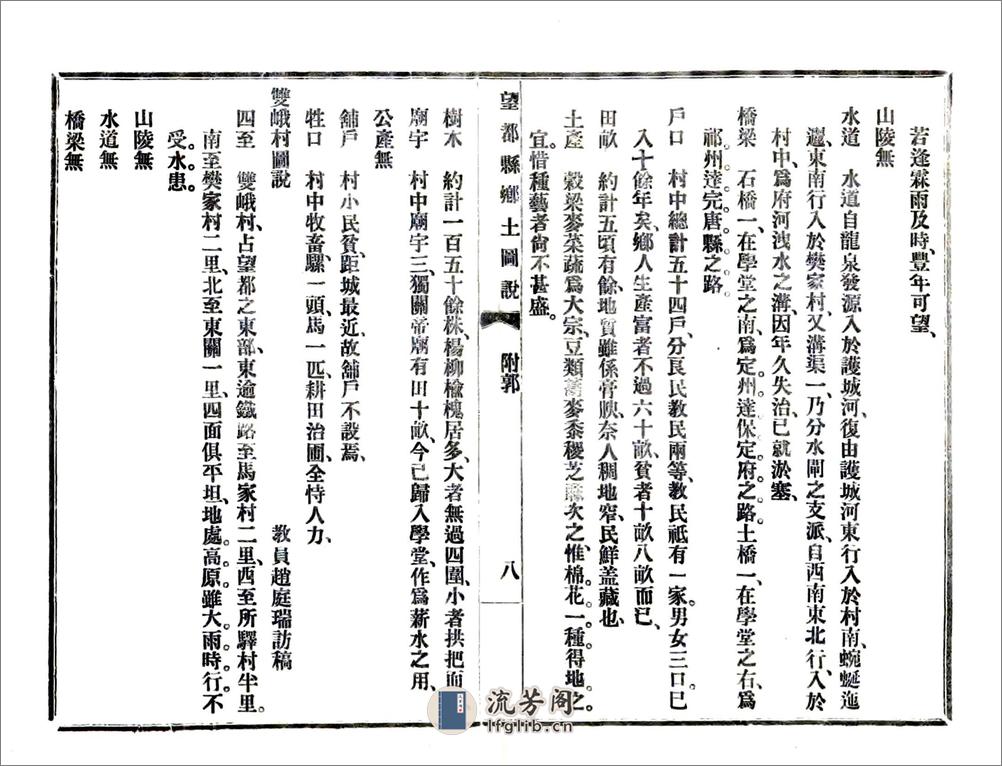 若逢霖雨及時、豐年可望、
山陵無
水道　水道自龍泉發源、入於護城河、復由護城河東行、入於村南、蜿蜒迤
邐、東南行、入於樊家村、又溝渠一、乃分水閘之支派、自西南東北行、入於
村中、爲府河洩水之溝、因年久失治、已就淤塞、
橋梁　石橋一、在學堂之南、爲定州達保定府之路、土橋一、在學堂之右、爲
祁州達完唐縣之路
戶口　村中總計五十四戶、分良民教民兩等、教民祇有一家、男女三口、已
入十餘年矣、鄉人生產、富者不過六十畝、貧者十畝八畝而已、
田畝　約計五頃有餘、地質雖係膏腴、奈人稠地窄、民鮮盖藏也、
土產　穀梁麥菜蔬爲大宗、豆類蕎麥黍稷芝蔴次之、惟棉花一種、得地之
宜、惜種藝者尙不甚盛。
望都縣鄉土圖說　附郭　八
樹木　約計一百五十餘株、楊柳楡槐居多、大者無過四圍、小者拱把而
廟宇　村中廟宇三、獨關帝廟有田十畝、今已歸入學堂、作爲薪水之用、
公產無
舖戶　村小民貧、距城最近、故舖戶不設焉、
牲口　村中牧畜、騾一頭、馬一匹、耕田治圃、全恃人力、
雙峨村圖說　教員趙庭瑞訪稿
四至　雙峨村、占望都之東部、東逾鐵路至馬家村二里、西至所驛村半里。
南至樊家村二里、北至東關一里、四面俱平坦、地處高原、雖大雨時行、不
受水患。
山陵無
水道無
橋梁無
流芳阁
lfglib.cn